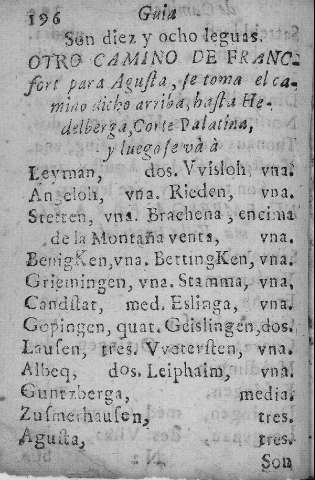 196 Guia
Son diez y ocho leguas.
OTRO CAMINO DE FRANC-
fort para Agusta, se toma el ca-
mino dicho arriba, hasta He-
delberga, Corte Palatina,
y luego se và à
Leyman, dos. Vvisloh, vna.
Angeloh, vna. Rieden, vna.
Stetten, vna. Brachena, encima
de la Montaña venta, vna.
BenigKen, vna. BettingKen, vna.
Griemingen, vna. Stamma, vna.
Candstat, med. Eslinga, vna.
Gopingen, quat. Geislingen, dos.
Lausen, tres. Vvetersten, vna.
Albeq, dos. Leiphaim, vna.
Guntzberga, media.
Zusmerhausen, tres.
Agusta, tres.
N 2 Son